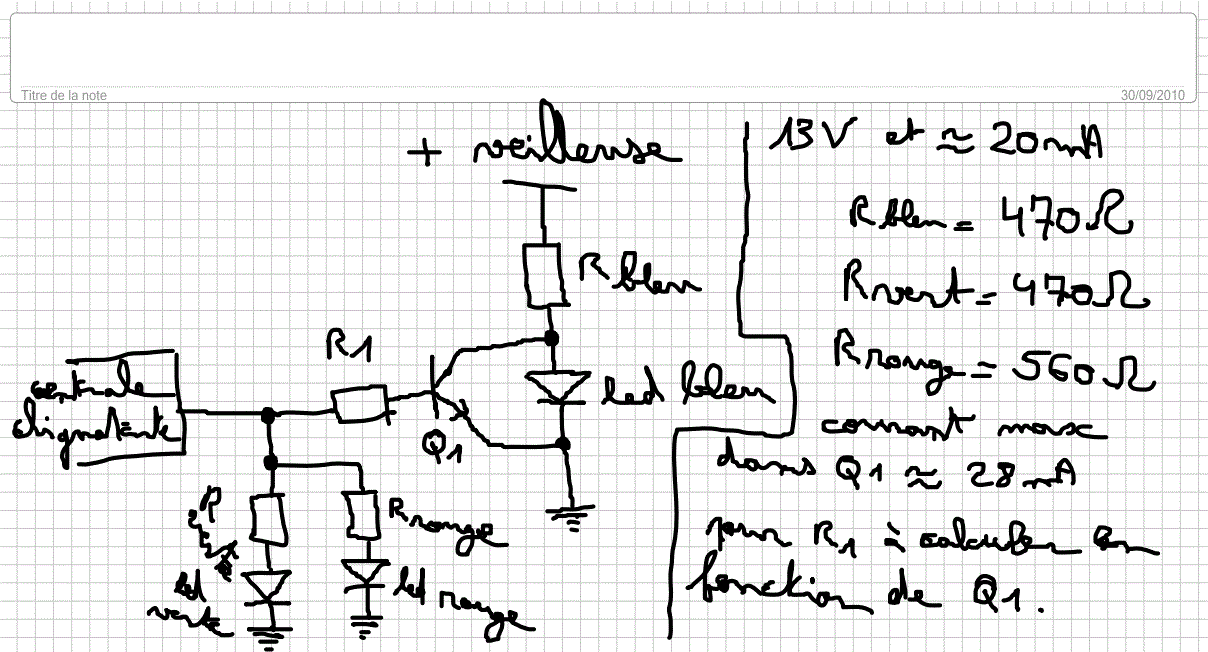 Titre de la note
30/09/2010
+ veilleuse
R bleu
R1
centrale
clignotante
Q1
led bleu
R rouge
led
verte
led rouge
13V et ≈ 20mA
R bleu = 470Ω
R vert = 470Ω
R rouge = 560Ω
courant max
dans Q1 ≈ 28mA
pour R1 à calculer en
fonction de Q1.